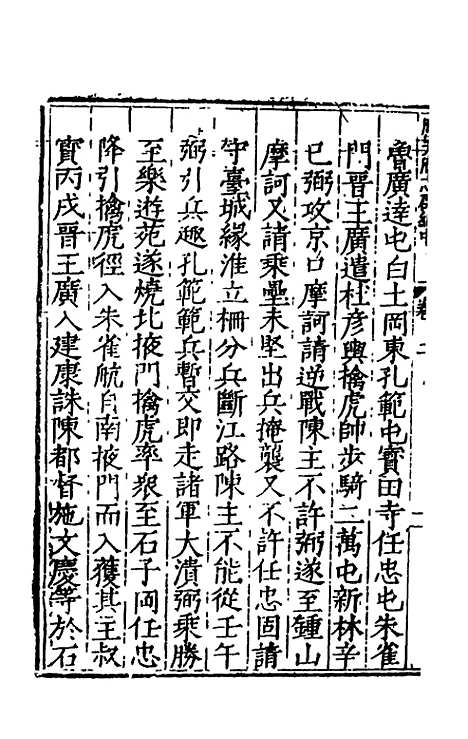 魯廣達屯白土岡東孔範屯寳田寺任忠屯朱雀
門晉王廣遣杜彦與擒虎帥步騎二萬屯新林辛
巳弼攻京口摩訶請逆戰陳主不許弼遂至鍾山
摩訶又請乘壘未堅出兵掩襲又不許任忠固請
守臺城緣淮立柵分兵斷江路陳主不能從壬午
弼引兵趣孔範範兵暫交即走諸軍大潰弼乘勝
至樂遊苑遂燒北掖門擒虎率衆至石子岡任忠
降引擒虎徑入朱雀航自南掖門而入獲其主叔
寳丙戌晉王廣入建康誅陳都督施文慶等於石